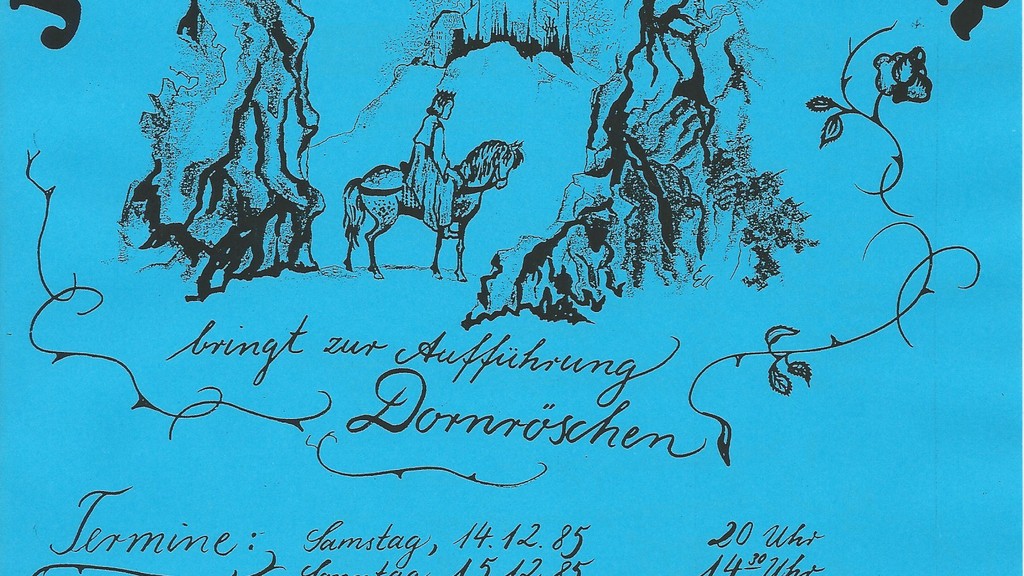 bringt zur Aufführung
Dornröschen
Termine: Samstag, 14.12.85 20 Uhr
15.12.85 14³⁰ Uhr